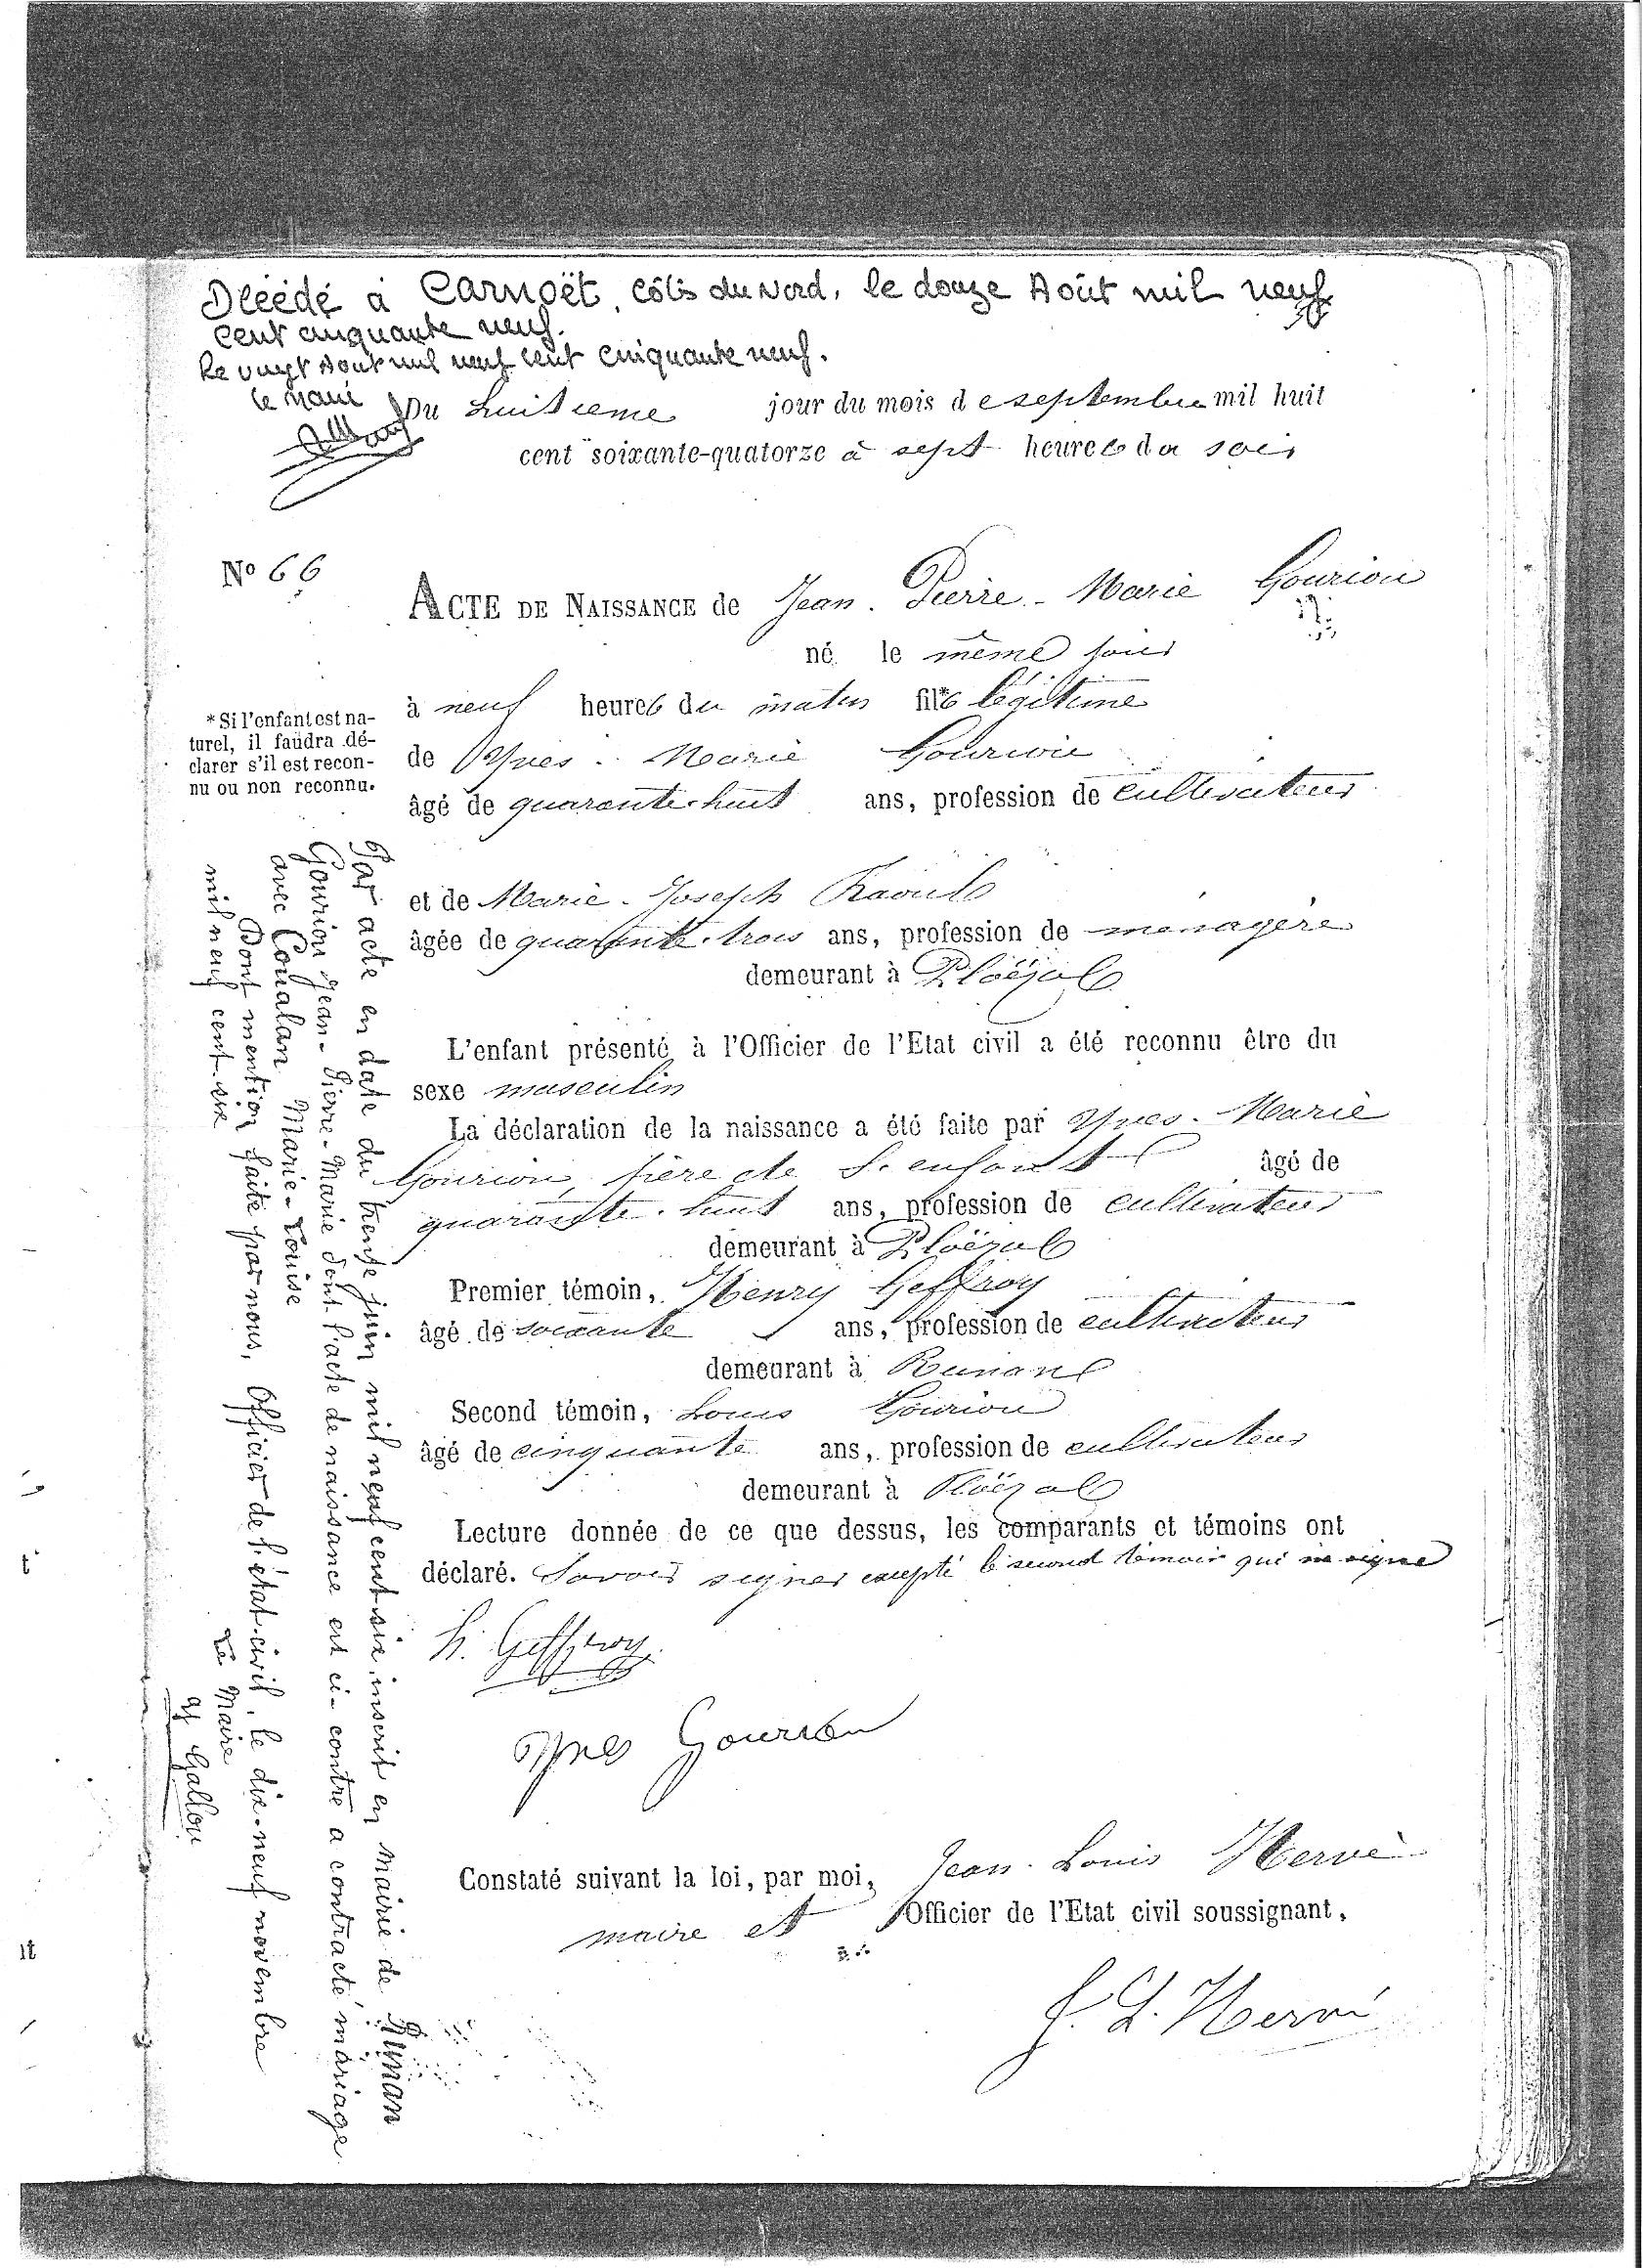 Décédé à Carnoët, Côtes du Nord, le douze Août mil neuf
cent cinquante neuf.
Le vingt Août mil neuf cent cinquante neuf.
Le Maire
Du huitieme jour du mois de septembre mil huit
cent soixante-quatorze à sept heures du soir
No 66
ACTE DE NAISSANCE de Jean-Pierre-Marie Gouriou
né le même jour
à neuf heures du matin fils* légitime
de Yves-Marie Gouriou
âgé de quarante-huit ans, profession de cultivateur
* Si l'enfant est na-
turel, il faudra dé-
clarer s'il est recon-
nu ou non reconnu.
et de Marie-Joseph Raoul
âgée de quarante-trois ans, profession de ménagère
demeurant à Ploëzal
L'enfant présenté à l'Officier de l'Etat civil a été reconnu être du
sexe masculin
La déclaration de la naissance a été faite par Yves-Marie
Gouriou, père de l'enfant âgé de
quarante-huit ans, profession de cultivateur
demeurant à Ploëzal
Premier témoin, Henry Geffroy
âgé de soixante ans, profession de cultivateur
demeurant à Runan
Second témoin, Louis Gouriou
âgé de cinquante ans, profession de cultivateur
demeurant à Ploëzal
Lecture donnée de ce que dessus, les comparants et témoins ont
déclaré. Savoir signer excepté le second témoin qui ne signe
h. Geffroy
Yves Gouriou
Constaté suivant la loi, par moi, Jean-Louis Hervé
maire et Officier de l'Etat civil soussignant,
J. L. Hervé
Par acte en date du trente juin mil neuf cent six, inscrit en Mairie de Runan
Gouriou Jean-Pierre-Marie dont l'acte de naissance est ci-contre a contracté mariage
avec Coualan Marie-Louise
Dont mention faite par nous, Officier de l'état-civil, le dix-neuf novembre
mil neuf cent six
Le Maire
Y Gallou
t'
it